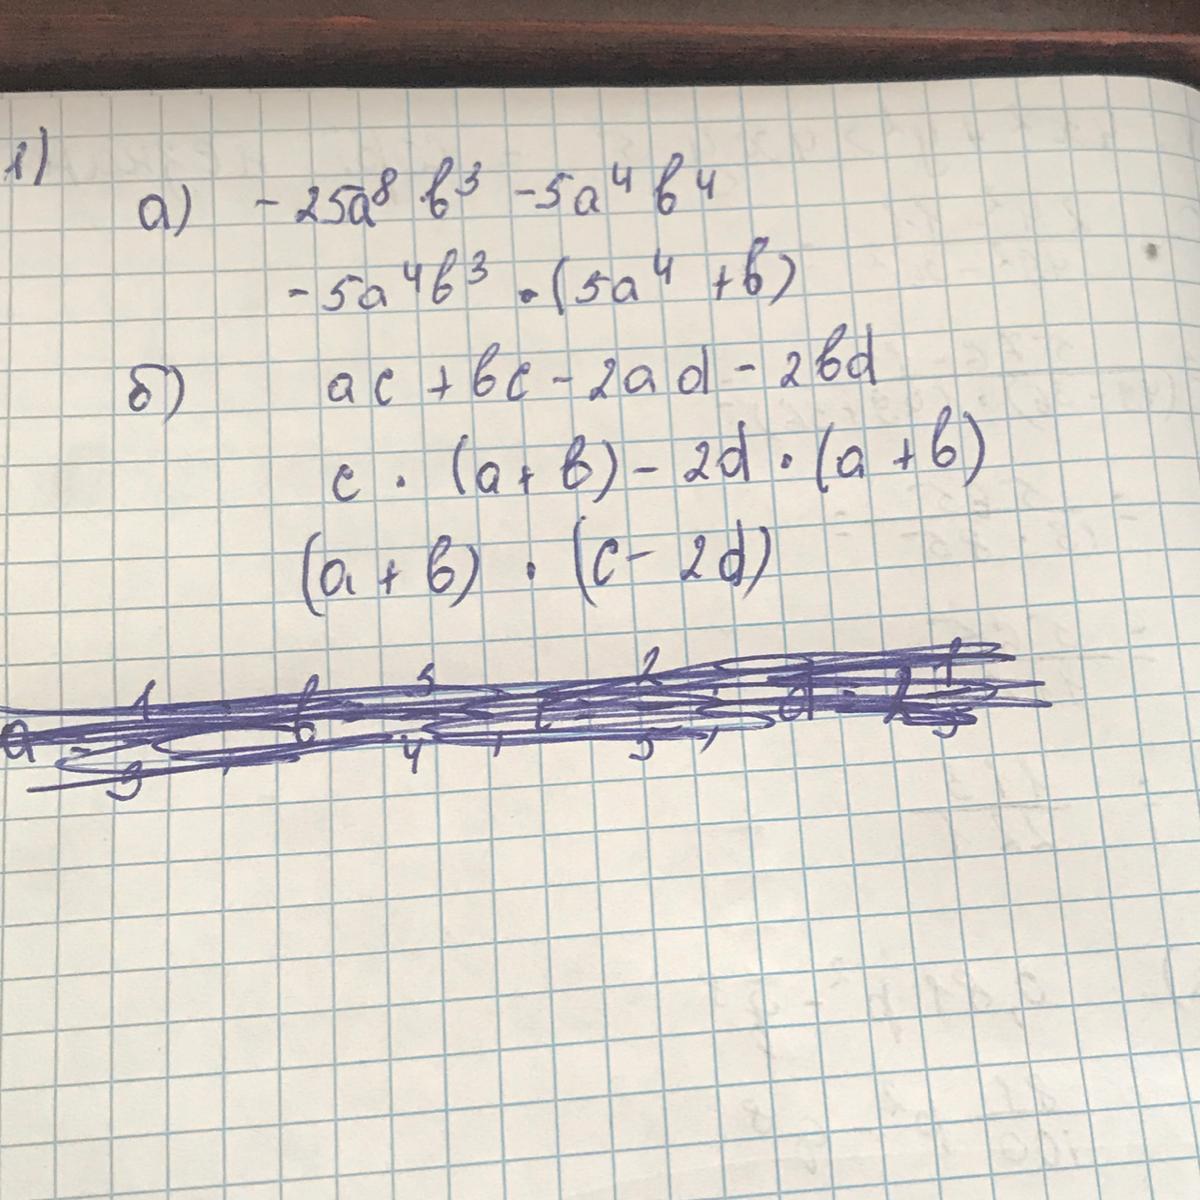 1)
а) - 25a⁸ b³ - 5a⁴ b⁴
- 5a⁴b³ · (5a⁴ + b)
б) ac + bc - 2ad - 2bd
c · (a + b) - 2d · (a + b)
(a + b) · (c - 2d)